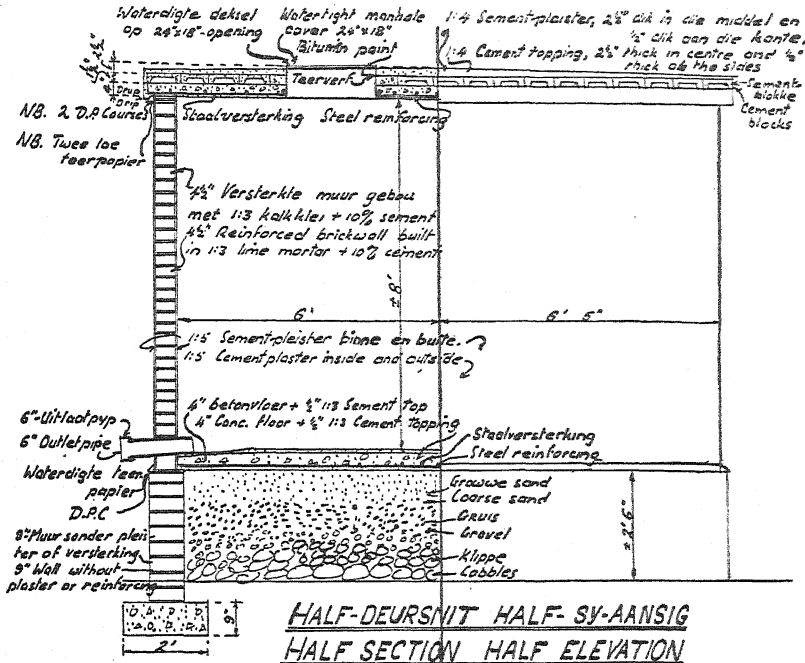 Waterdigte deksel
op 24"x18"-opening
Watertight manhole
cover 24"x18"
Bitumin paint
Teerverf
1:4 Sement-pleister, 2½" dik in die middel en
½" dik aan die kante.
1:4 Cement topping, 2½" thick in centre and ½"
thick at the sides
Sement-
blokke
Cement
blocks
Drup
Drip
NB. 2 D.P. Courses
NB. Twee lae
teerpapier
Staalversterking
Steel reinforcing
4½" Versterkte muur gebou
met 1:3 kalkklei + 10% sement
4½" Reinforced brickwall built
in 1:3 lime mortar + 10% cement
±8'
6'
6' 5"
1:5 Sement-pleister binne en buite.
1:5 Cement plaster inside and outside
4" betonvloer + ½" 1:3 Sement top
4" Conc. floor + ½" 1:3 Cement topping
6"-Uitlaatpyp
6" Outlet pipe
Staalversterking
Steel reinforcing
Waterdigte teer
papier
D.P.C
Growwe sand
Coarse sand
Gruis
Gravel
Klippe
Cobbles
±2'6"
9" Muur sonder pleis
ter of versterking
9" Wall without
plaster or reinforcing
9"
2'
HALF-DEURSNIT HALF-SY-AANSIG
HALF SECTION HALF ELEVATION